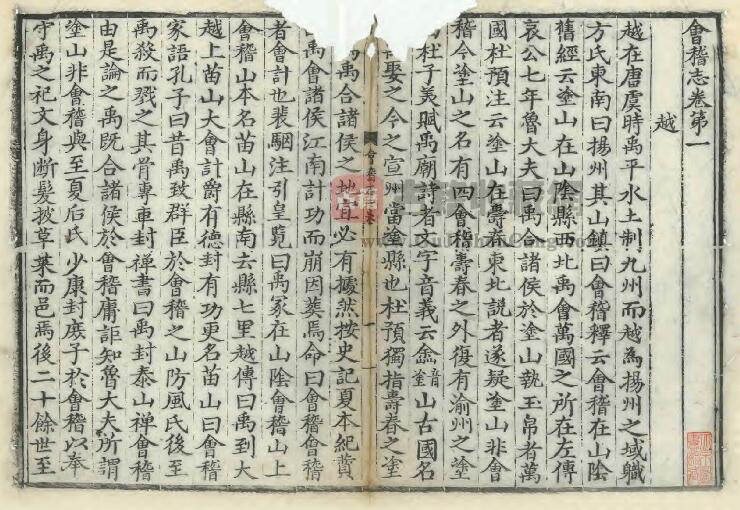 會稽志卷第一
越
越在唐虞時禹平水土制九州而越為揚州之域職
方氏東南曰揚州其山鎮曰會稽釋云會稽在山陰
舊經云塗山在山陰縣西北禹會萬國之所在左傳
哀公七年魯大夫曰禹合諸侯於塗山執玉帛者萬
國杜預注云塗山在壽春東北說者遂疑塗山非會
稽今塗山之名有四會稽壽春之外復有渝州之塗
杜子美賦禹廟詩者文字音義云嵞音塗山古國名
娶之今之宣州當塗縣也杜預獨指壽春之塗
會稽志卷一
禹合諸侯之地宜必有據然按史記夏本紀贊
禹會諸侯江南計功而崩因葬焉命曰會稽會稽
者會計也裴駰注引皇覽曰禹冢在山陰會稽山上
會稽山本名苗山在縣南去縣七里越傳曰禹到大
越上苗山大會計爵有德封有功更名苗山曰會稽
家語孔子曰昔禹致群臣於會稽之山防風氏後至
禹殺而戮之其骨專車封禪書曰禹封泰山禪會稽
由是論之禹既合諸侯於會稽庸詎知魯大夫所謂
塗山非會稽與至夏后氏少康封庶子於會稽以奉
守禹之祀文身断髮披草萊而邑焉後二十餘世至